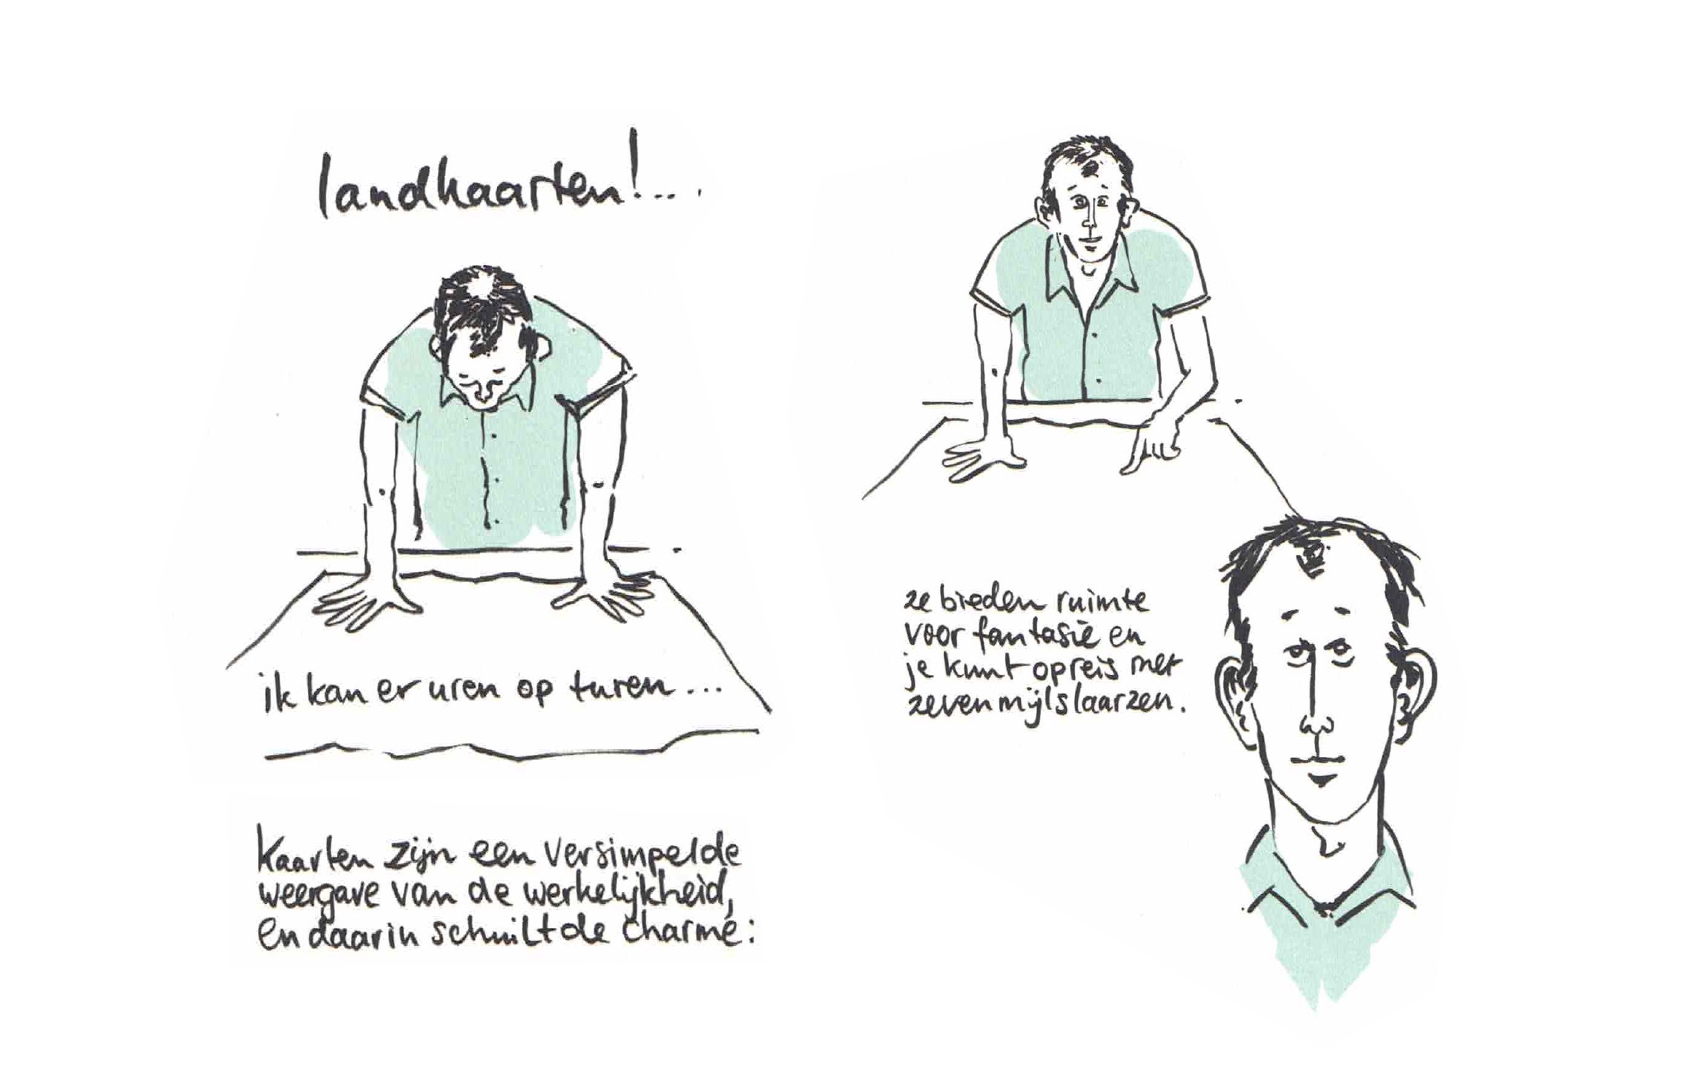 landkaarten!...
ik kan er uren op turen...
Kaarten zijn een versimpelde
weergave van de werkelijkheid,
en daarin schuilt de charme:
ze bieden ruimte
voor fantasie en
je kunt op reis met
zevenmijlslaarzen.